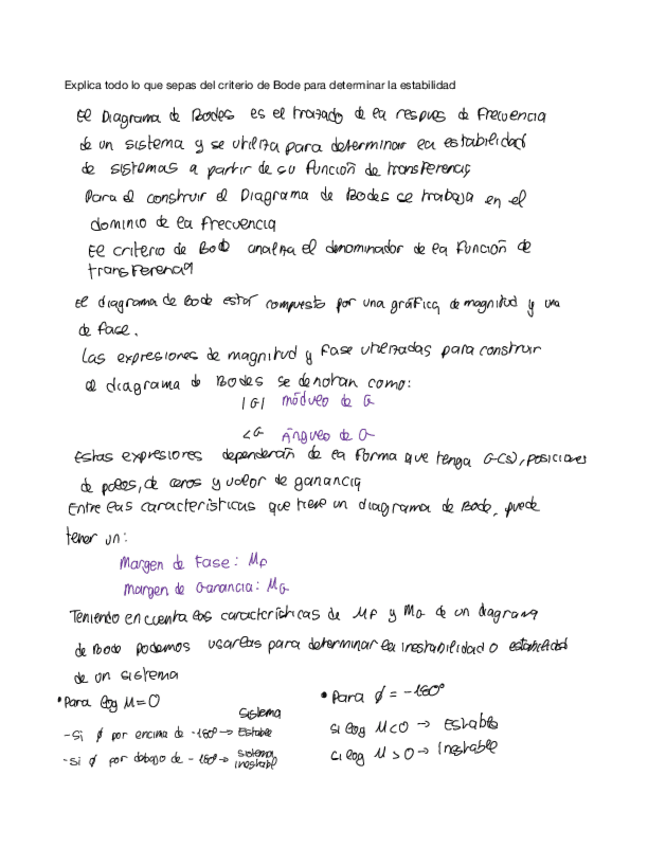 Explica todo lo que sepas del criterio de Bode para determinar la estabilidad
El Diagrama de Bodes es el trazado de la respues de Frecuencia
de un sistema y se utiliza para determinar la estabilidad
de sistemas a partir de su función de transferencia
Para el construir el Diagrama de Bodes se trabaja en el
dominio de la frecuencia
El criterio de Bode analiza el denominador de la función de
transferencia
El diagrama de Bode estar compuesto por una gráfica de magnitud y una
de fase.
Las expresiones de magnitud y Fase utilizadas para construir
el diagrama de Bodes se denotan como:
|G| módulo de G
∠G Ángulo de G
Estas expresiones dependerán de la forma que tenga G(s), posiciones
de polos, de ceros y valor de ganancia
Entre las características que tiene un diagrama de Bode, puede
tener un:
Margen de Fase: MF
Margen de Ganancia: MG
Teniendo en cuenta las características de MF y MG de un diagrama
de Bode podemos usarlas para determinar la inestabilidad o estabilidad
de un sistema
• Para log M=0
- Si ϕ por encima de -180° → Sistema Estable
- Si ϕ por debajo de -180° → sistema inestable
• Para ϕ = -180°
si log M<0 → Estable
si log M>0 → Inestable